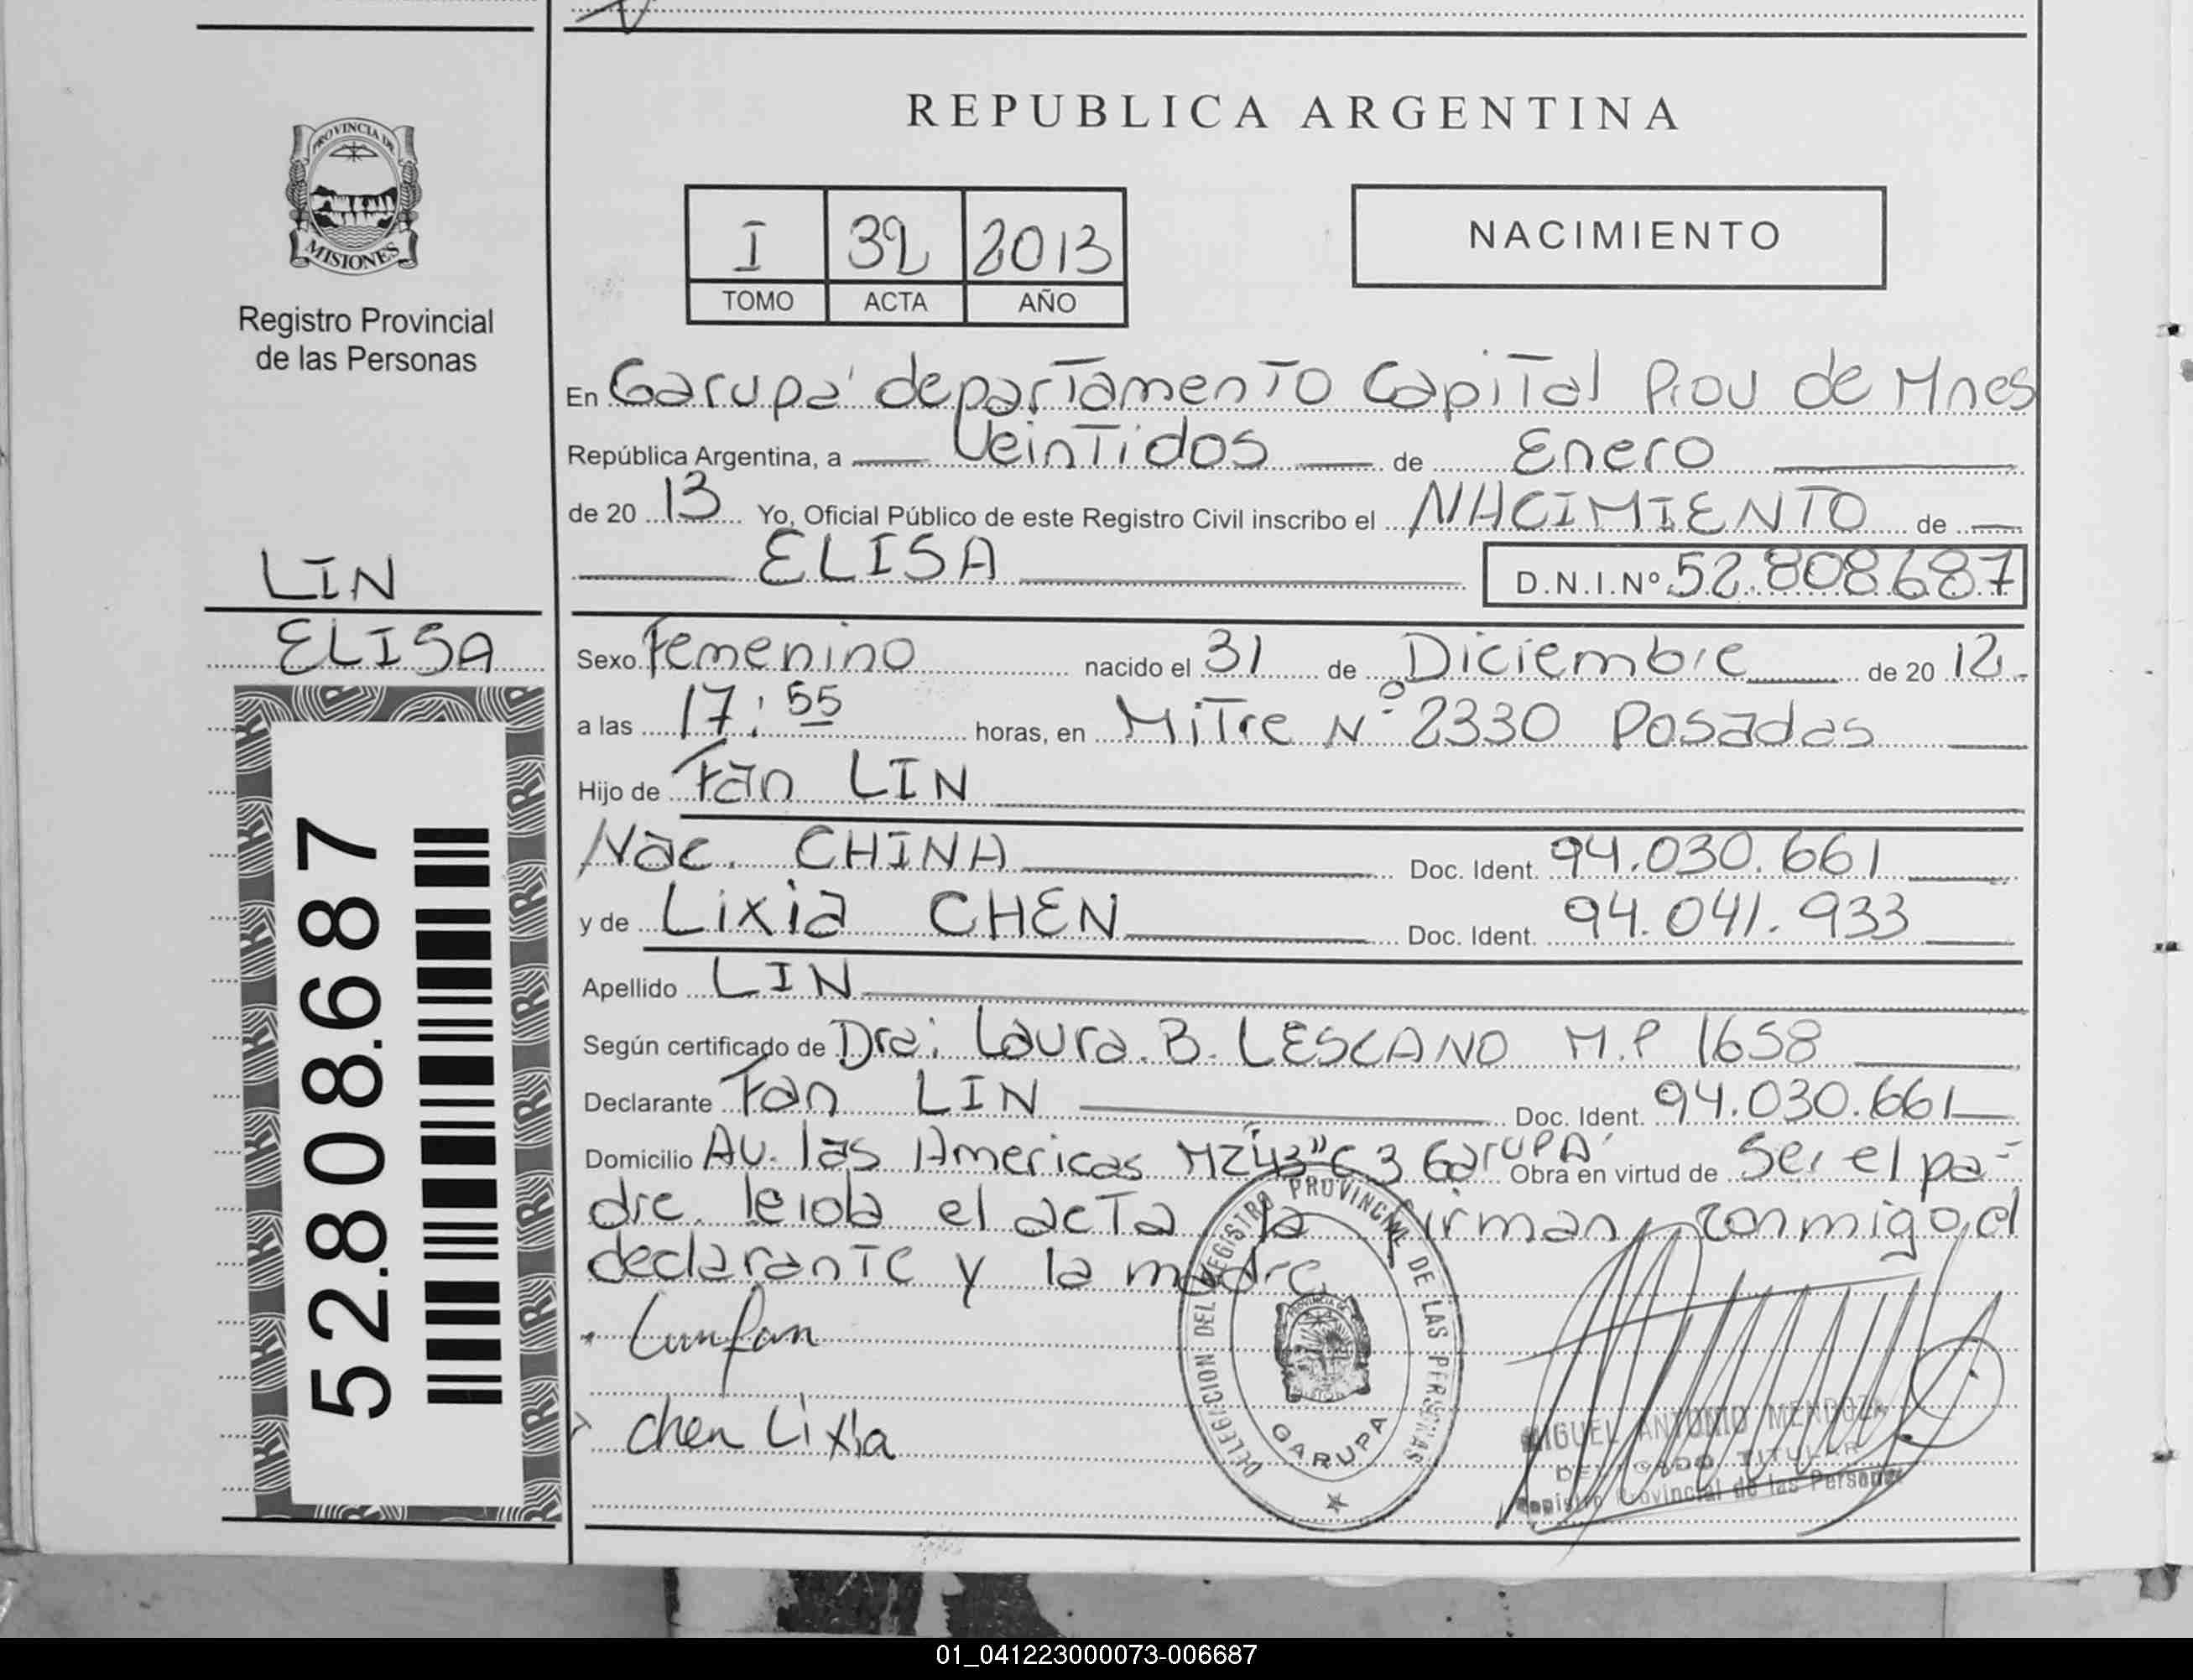 PROVINCIA DE
MISIONES
Registro Provincial
de las Personas
LIN
ELISA
52.808.687
REPUBLICA ARGENTINA
I 32 2013
TOMO ACTA AÑO
NACIMIENTO
En Garupa' departamento Capital Prov de Mnes
República Argentina, a Veintidos de Enero
de 20 13 Yo, Oficial Público de este Registro Civil inscribo el NACIMIENTO de
ELISA D.N.I.Nº 52.808687
Sexo Femenino nacido el 31 de Diciembre de 20 12
a las 17:55 horas, en Mitre Nº 2330 Posadas
Hijo de Fan LIN
Nac. CHINA Doc. Ident. 94.030.661
y de Lixia CHEN Doc. Ident. 94.041.933
Apellido LIN
Según certificado de Dra: Laura B. LESCANO M.P 1658
Declarante Fan LIN Doc. Ident. 94.030.661
Domicilio Av. las Americas C 3 GarUPA' Obra en virtud de Ser el pa-
dre. leida el acta la firman conmigo el
declarante y la madre
chen Lixia
DELEGACION DEL REGISTRO PROVINCIAL DE LAS PERSONAS
GARUPA
MIGUEL ANTONIO MENDOZA
DELEGADO TITULAR
Registro Provincial de las Personas
01_041223000073-006687